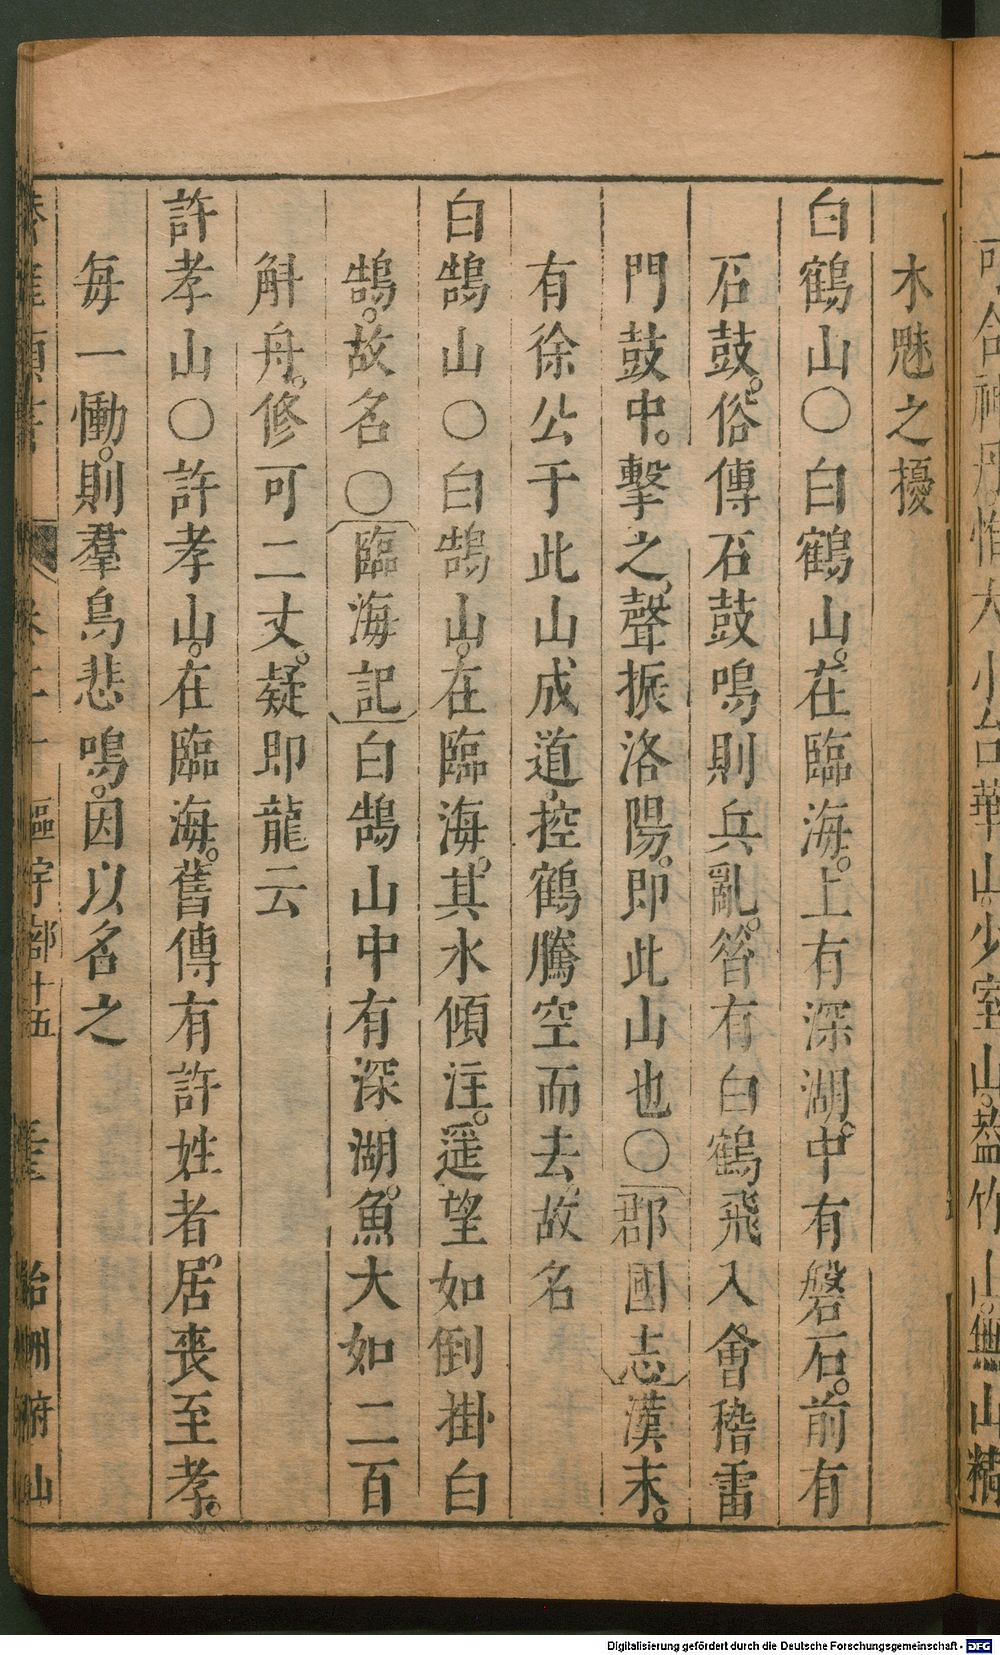 木魅之擾
白鶴山○白鶴山。在臨海。上有深湖。中有磐石。前有
石鼓。俗傳石鼓鳴則兵亂。昝有白鶴飛入會稽雷
門鼓中。擊之聲振洛陽。即此山也○郡國志漢末。
有徐公于此山成道。控鶴騰空而去。故名
白鵠山○白鵠山。在臨海。其水傾注。遥望如倒掛白
鵠。故名○臨海記白鵠山中有深湖。魚大如二百
斛舟。修可二丈。疑即龍云
許孝山○許孝山。在臨海。舊傳有許姓者。居喪至孝。
每一慟。則羣鳥悲鳴。因以名之
卷二十一 區宇部十五 台州府山
山少室山。蓋竹山。無山精
Digitalisierung gefördert durch die Deutsche Forschungsgemeinschaft - DFG